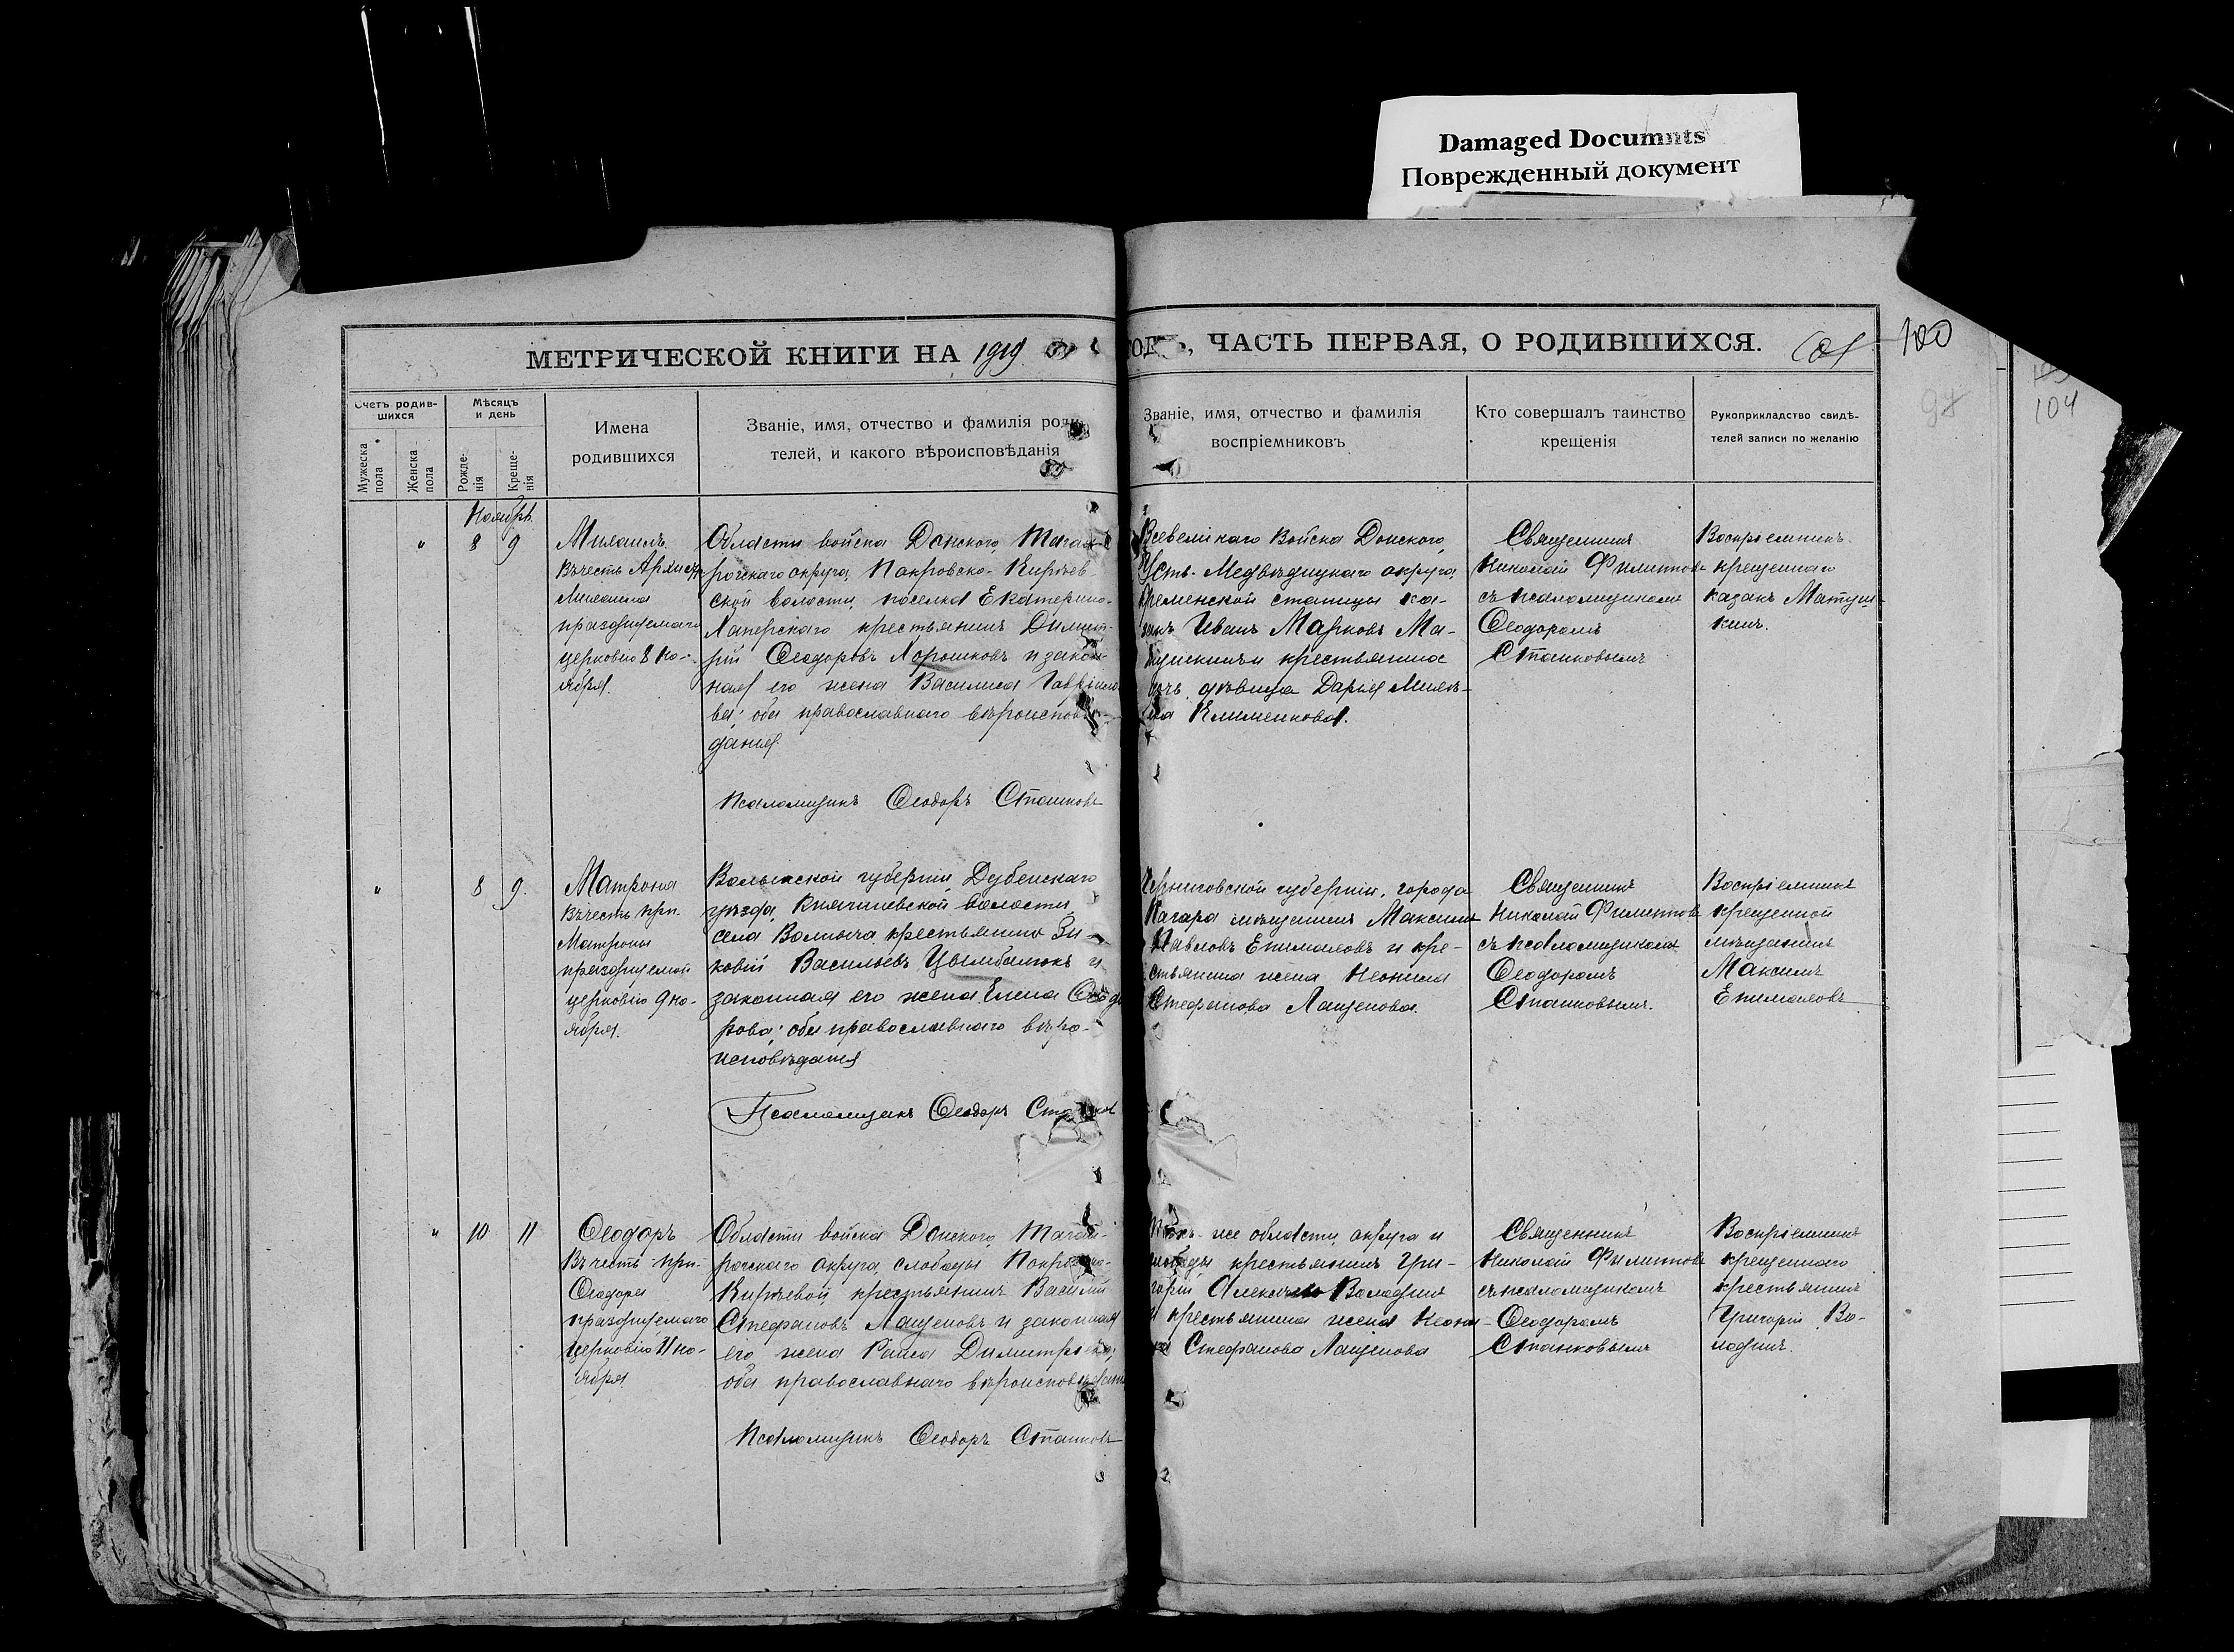 Damaged Documnts
Поврежденный документ
МЕТРИЧЕСКОЙ КНИГИ НА 1919
ОДЪ, ЧАСТЬ ПЕРВАЯ, О РОДИВШИХСЯ.
101
100
104
97
Счетъ родив-
шихся
Мужеска
пола
Женска
пола
Мѣсяцъ
и день
Рожде-
нія
Креще-
нія
Имена
родившихся
Званіе, имя, отчество и фамилія роди
телей, и какого вѣроисповѣданія
Званіе, имя, отчество и фамилія
воспріемниковъ
Кто совершалъ таинство
крещенія
Рукоприкладство свидѣ-
телей записи по желанію
Ноябрь
" 8 9
Михаилъ.
Въ честь Архистр.
Михаила
празднуемаго
церковію 8 но-
ября.
Области войска Донского, Таган-
рогскаго округа, Покровско-Киреев-
ской волости, поселка Екатерино-
Хаперскаго крестьянинъ Димит-
рій Ѳеодоровъ Хорошковъ и закон-
ная его жена Василиса Гаврило-
ва; оба православнаго вѣроисповѣ-
данія.
Псаломщикъ Ѳеодоръ Станковъ
Всевеликаго Войска Донского,
Усть-Медвѣдицкаго округа,
Кременской станицы ка-
закъ Иванъ Марковъ Ма-
тушкинъ и крестьянина
дочь дѣвица Дарья Михѣ-
ева Клименкова.
Священникъ
Николай Филиппов
съ псаломщикомъ
Ѳеодоромъ
Станковымъ
Воспріемникъ
крещеннаго
казакъ Матуш-
кинъ.
" 8 9.
Матрона
Въ честь прп.
Матроны
празднуемой
церковію 9 но-
ября.
Волынской губерніи, Дубенскаго
уѣзда, Княгининской волости
села Волпыча крестьянинъ Зи-
новій Васильевъ Цымбалюкъ и
законная его жена Елена Ѳеодо
рова; оба православнаго вѣро-
исповѣданія
Псаломщикъ Ѳеодоръ Станков
Черниговской губерніи, города
Погара мѣщанинъ Максимъ
Павловъ Епимаховъ и кре-
стьянина жена Неонила
Стефанова Лащенова.
Священникъ
Николай Филиппов
съ псаломщикомъ
Ѳеодоромъ
Станковымъ.
Воспріемникъ
крещенной
мѣщанинъ
Максимъ
Епимаховъ
" 10 11
Ѳеодоръ
Въ честь прп.
Ѳеодора
празднуемаго
церковію 11 но-
ября
Области войска Донского, Таган-
рогскаго округа, слободы Покровско-
Киреевой, крестьянинъ Василій
Стефановъ Лащеновъ и законная
его жена Раиса Димитріева;
оба православнаго вѣроисповѣданія
Псаломщикъ Ѳеодоръ Станковъ
же области, округа и
слободы крестьянинъ Гри-
горій Володинъ
и крестьянина жена Неони-
ла Стефанова Лащенова
Священникъ
Николай Филиппов
съ псаломщикомъ
Ѳеодоромъ
Станковымъ
Воспріемникъ
крещеннаго
крестьянинъ
Григорій Во-
лодинъ.